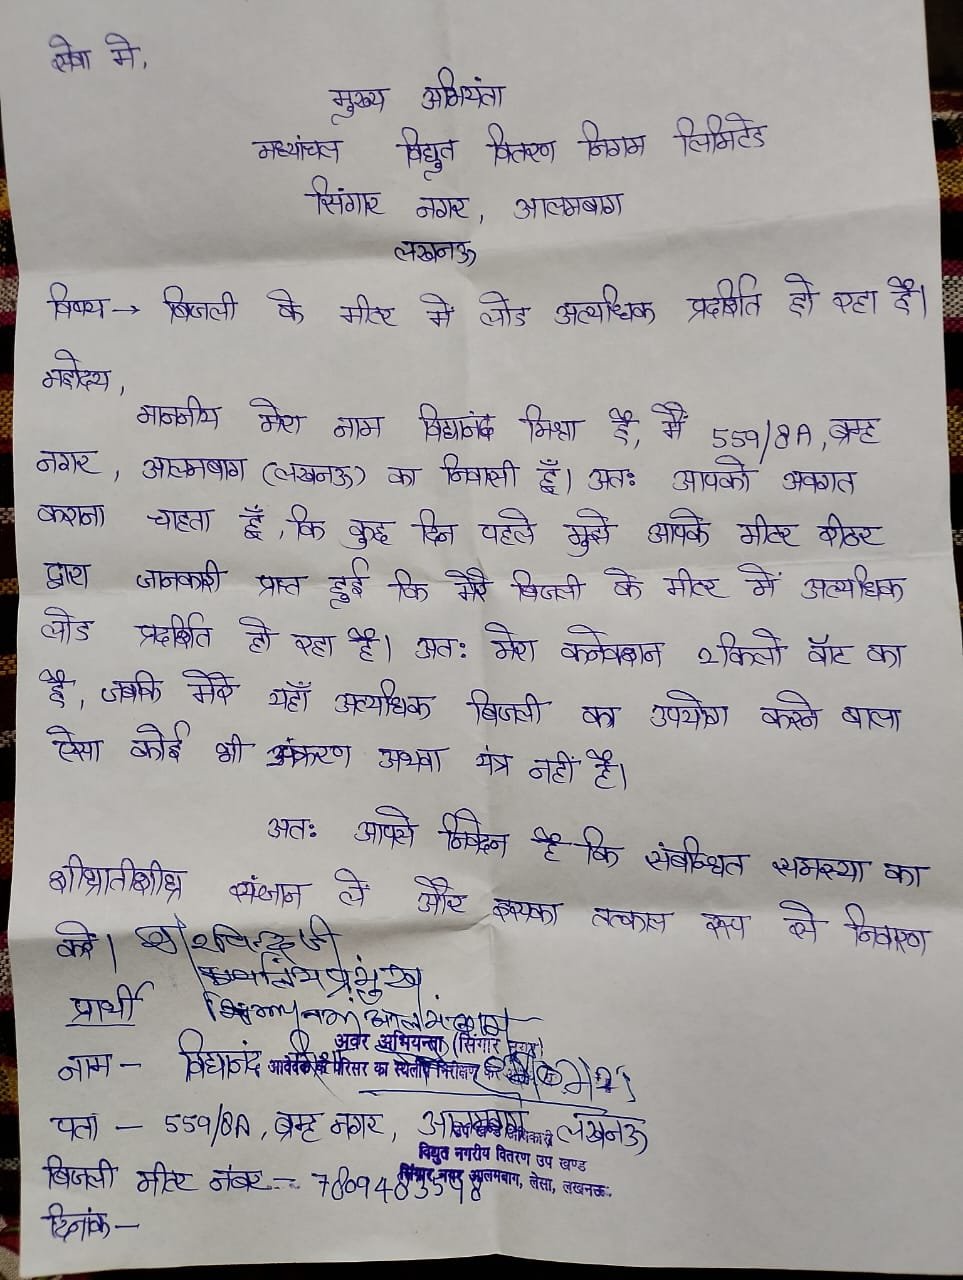 सेवा मे,
मुख्य अभियंता
मध्यांचल विद्युत वितरण निगम लिमिटेड
सिंगार नगर, आलमबाग
लखनऊ
विषय → बिजली के मीटर में लोड अत्यधिक प्रदर्शित हो रहा है।
महोदय,
माननीय मेरा नाम विद्यानंद मिश्रा है, मैं 559/8A, ब्रम्ह
नगर, आलमबाग (लखनऊ) का निवासी हूँ। अतः आपको अवगत
कराना चाहता हूँ, कि कुछ दिन पहले मुझे आपके मीटर रीडर
द्वारा जानकारी प्राप्त हुई कि मेरे बिजली के मीटर में अत्यधिक
लोड प्रदर्शित हो रहा है। अतः मेरा कनेक्शन 2 किलो वॉट का
है, जबकि मेरे यहाँ अत्यधिक बिजली का उपयोग करने वाला
ऐसा कोई भी उपकरण अथवा यंत्र नहीं है।
अतः आपसे निवेदन है कि संबन्धित समस्या का
शीघ्रातीशीघ्र संज्ञान ले और इसका तत्काल रूप से निवारण
करे।
प्रार्थी
अवर अभियन्ता (सिंगार नगर)
नाम - विद्यानंद
परिसर का स्थलीय निरीक्षण कर
पता - 559/8A, ब्रम्ह नगर, आलमबाग लखनऊ
विद्युत नगरीय वितरण उप खण्ड
बिजली मीटर नंबर -
सिंगार नगर आलमबाग, लेसा, लखनऊ
दिनांक -